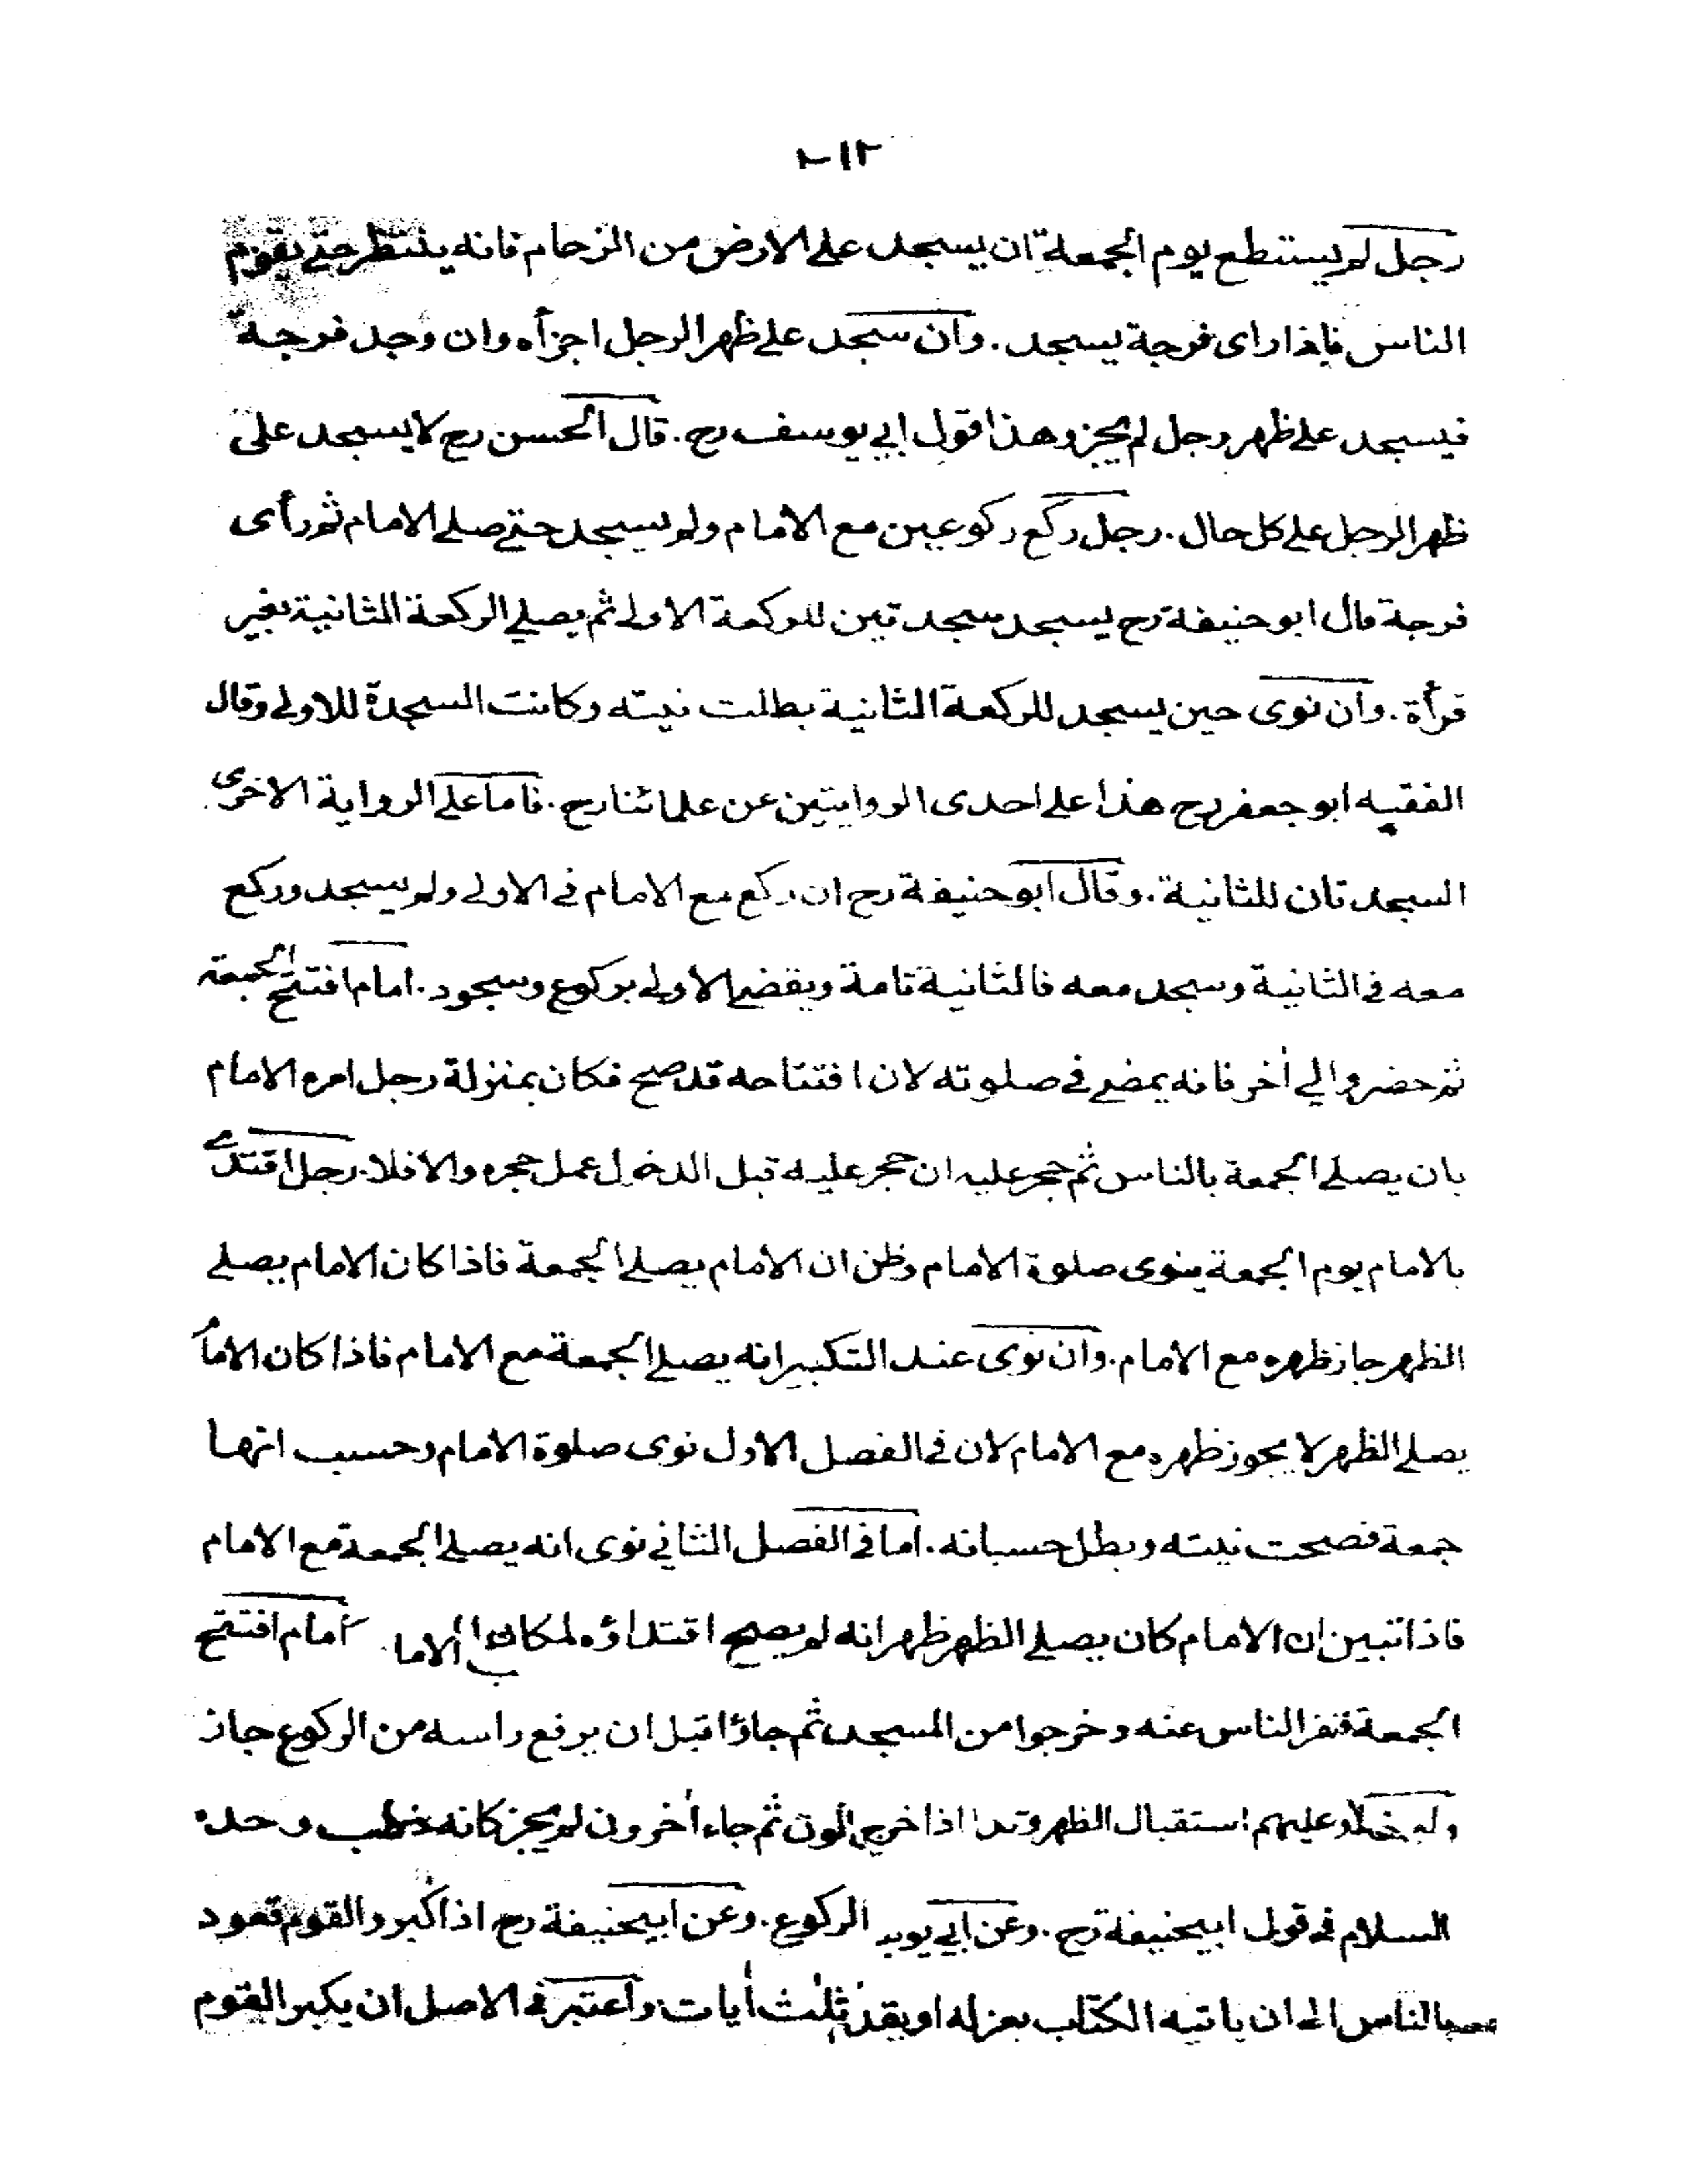 ٢١٢
رجل لم يستطع يوم الجمعة ان يسجد على الارض من الزحام فانه ينتظر حتى يقوم
الناس فاذا راى فرجة يسجد . وان سجد على ظهر الرجل اجزأه وان وجد فرجة
فيسجد على ظهر رجل لم يجز وهذا قول ابي يوسف رح . قال الحسن رح لا يسجد على
ظهر الرجل على كل حال . رجل ركع ركوعين مع الامام ولم يسجد حتى صلى الامام ثم رأى
فرجة قال ابو حنيفة رح يسجد سجدتين للركعة الاولى ثم يصلي الركعة الثانية بغير
قرأة . وان نوى حين يسجد للركعة الثانية بطلت نيته وكانت السجدة للاولى وقال
الفقيه ابو جعفر رح هذا على احدى الروايتين عن علمائنا رح . فاما على الرواية الاخرى
السجدتان للثانية . وقال ابو حنيفة رح ان ركع مع الامام في الاولى ولم يسجد وركع
معه في الثانية وسجد معه فالثانية تامة ويقضي الاولى بركوع وسجود . امام افتتح الجمعة
ثم حضر والي أخر فانه يمضي في صلوته لان افتتاحه قد صح فكان بمنزلة رجل امره الامام
بان يصلي الجمعة بالناس ثم حجر عليه ان حجر عليه قبل الدخول عمل حجره والا فلا . رجل اقتدى
بالامام يوم الجمعة ينوى صلوة الامام وظن ان الامام يصلي الجمعة فاذا كان الامام يصلي
الظهر جاز ظهره مع الامام . وان نوى عند التكبير انه يصلي الجمعة مع الامام فاذا كان الامام
يصلي الظهر لا يجوز ظهره مع الامام لان في الفصل الاول نوى صلوة الامام وحسب انها
جمعة فصحت نيته وبطل حسبانه . اما في الفصل الثاني نوى انه يصلي الجمعة مع الامام
فاذا تبين ان الامام كان يصلي الظهر ظهر انه لم يصح اقتداؤه لمكان الاما. امام افتتح
الجمعة فنفر الناس عنه وخرجوا من المسجد ثم جاؤا قبل ان يرفع راسه من الركوع جاز
عليهم استقبال الظهر اذا خرج ثم جاء أخرون لم يجز كانه خطب وحده
السلام في قول ابيحنيفة رح . وعن ابي الركوع . وعن ابيحنيفة رح اذا كبر والقوم قعود
بالناس الى ان ياتيه الكتاب بعزله او ثلث أيات واعتبر في الاصل ان يكبر القوم